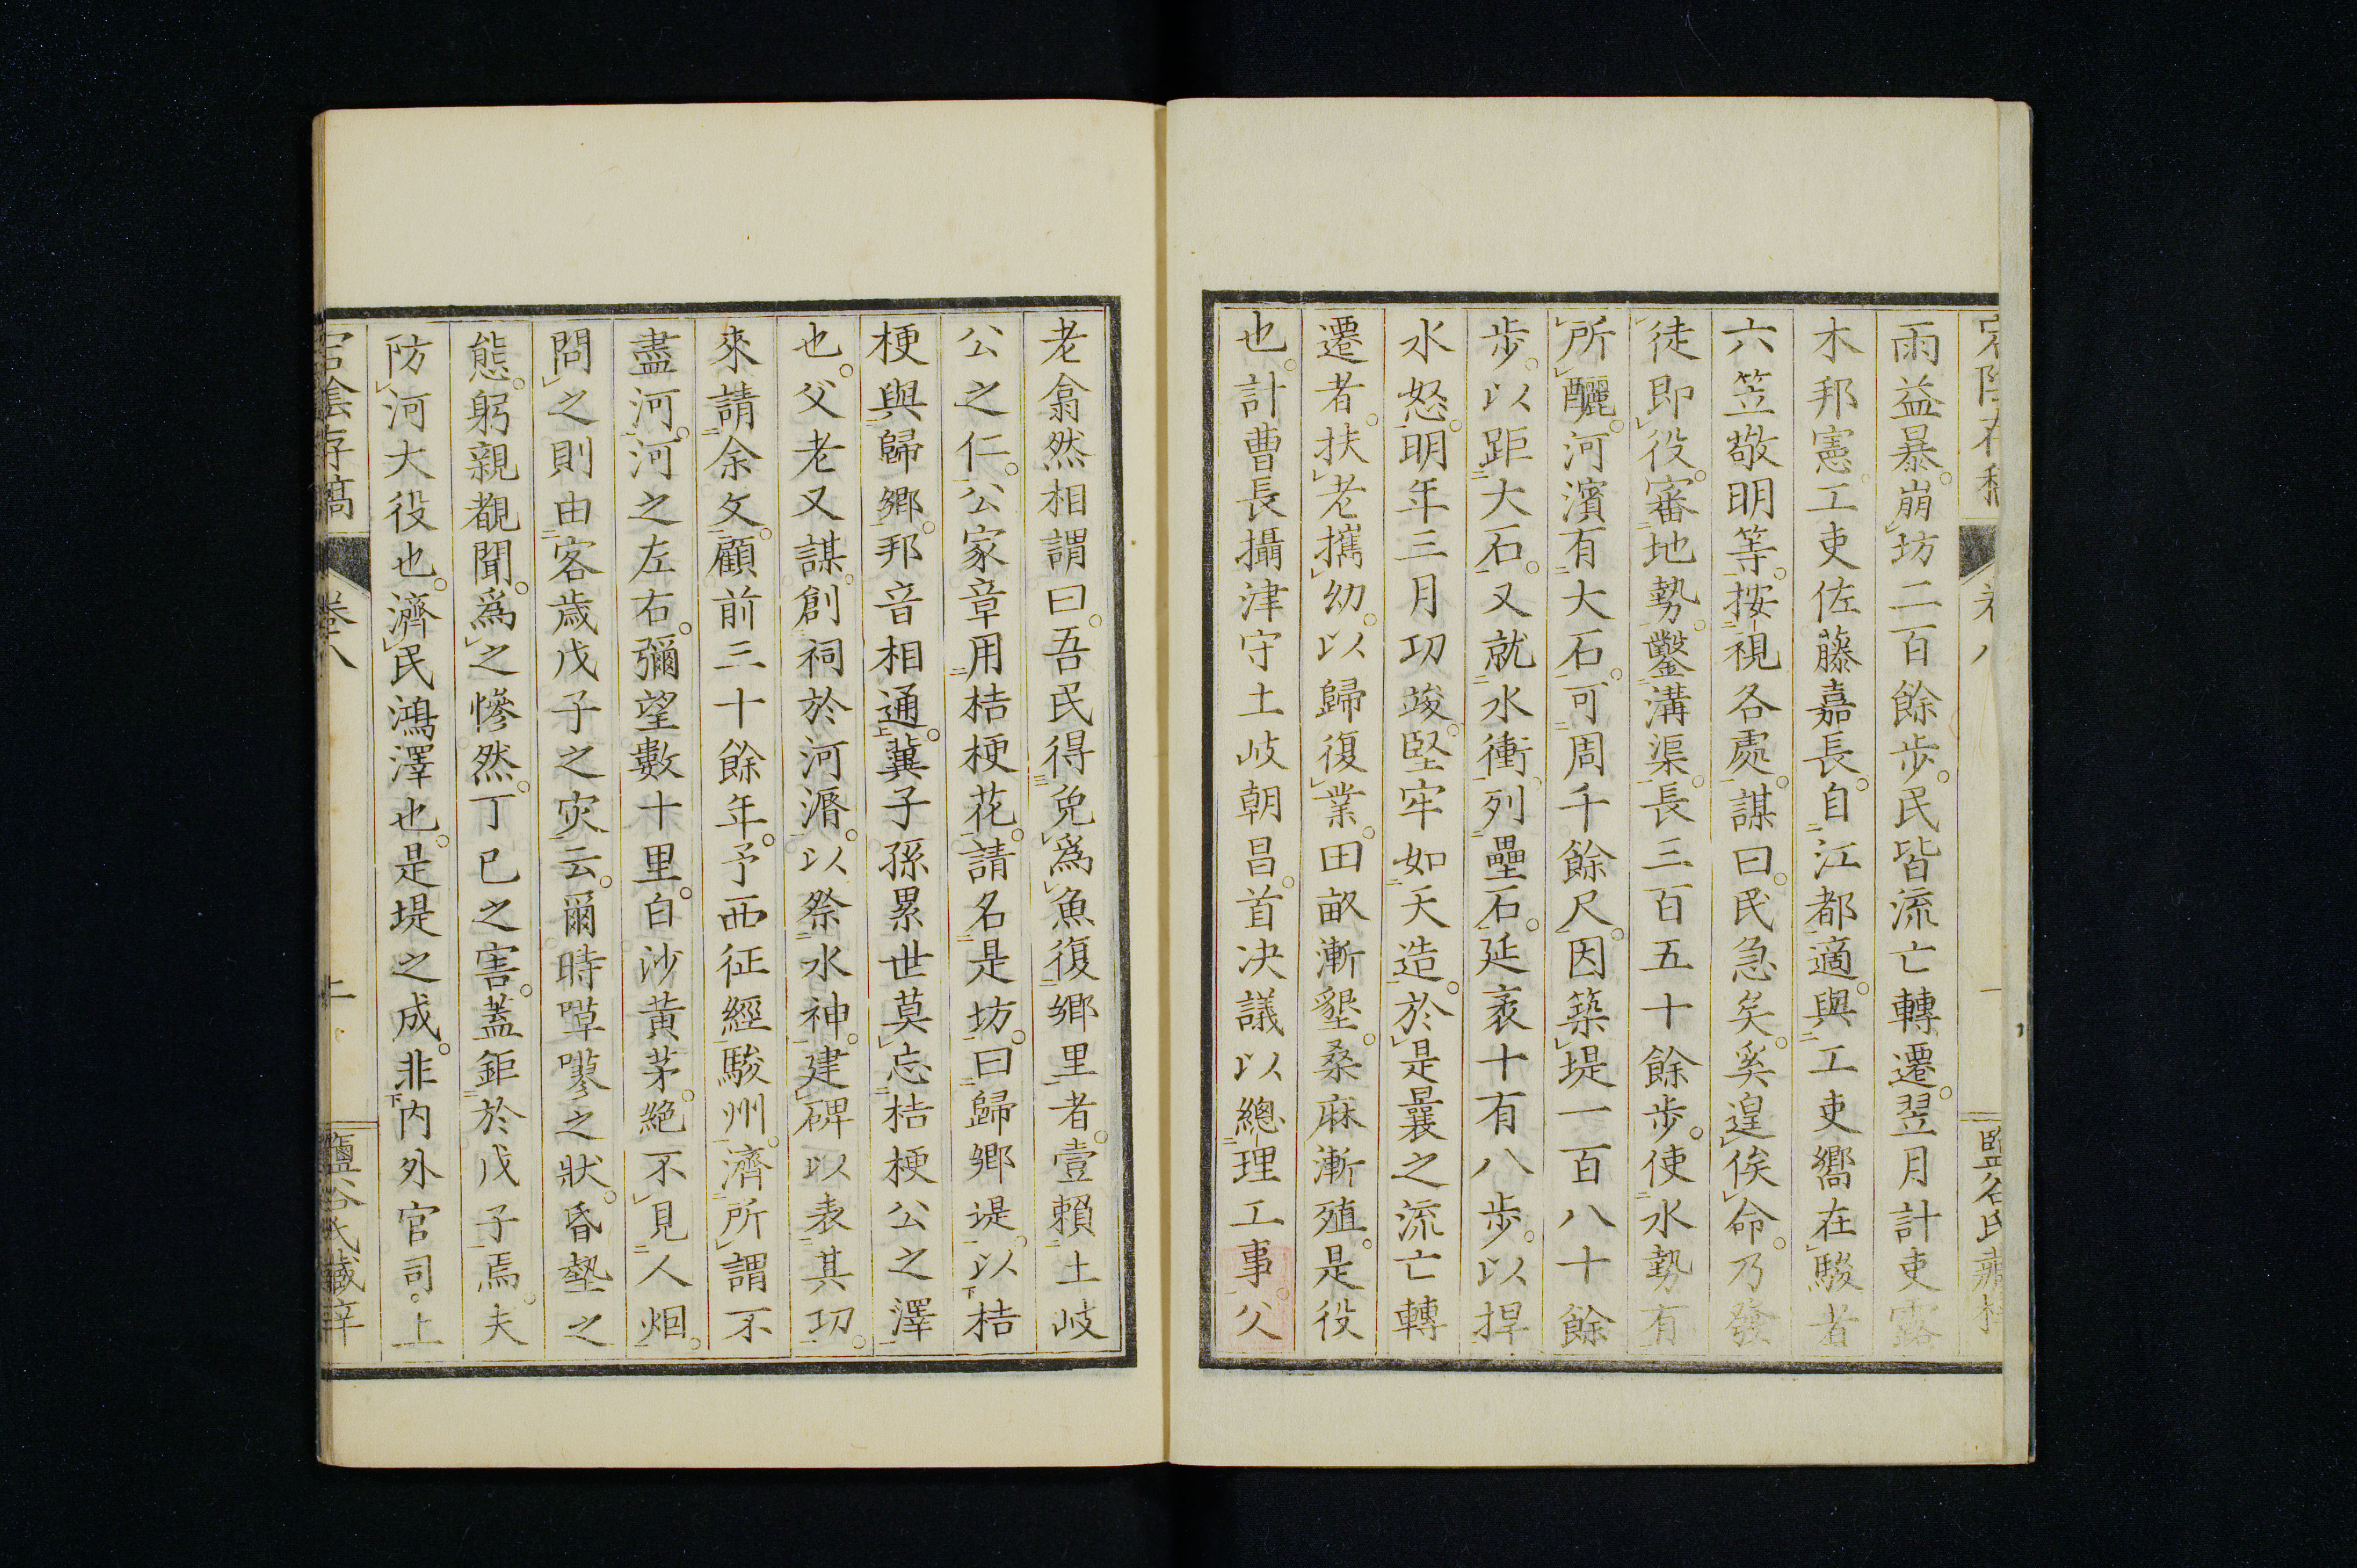 雨益暴。崩坊二百餘步。民皆流亡轉遷。翌月計吏露
木邦憲。工吏佐藤嘉長。自江都適。與工吏嚮在駿者
六笠敬明等。按視各處。謀曰。民急矣。奚遑俟命。乃發
徒即役。審地勢。鑿溝渠。長三百五十餘步。使水勢有
所釃。河濱有大石。可周千餘尺。因築堤一百八十餘
步。以距大石。又就水衝。列壘石。延袤十有八步。以捍
水怒。明年三月功竣。堅牢如天造。於是曩之流亡轉
遷者。扶老攜幼。以歸復業。田畝漸墾。桑麻漸殖。是役
也。計曹長攝津守土岐朝昌。首決議以總理工事。父
老翕然相謂曰。吾民得免爲魚復鄉里者。壹賴土岐
公之仁。公家章用桔梗花。請名是坊。曰歸鄉堤。以桔
梗與歸鄉。邦音相通。冀子孫累世莫忘桔梗公之澤
也。父老又謀。創祠於河漘。以祭水神。建碑以表其功。
來請余文。顧前三十餘年。予西征經駿州。濟所謂不
盡河。河之左右。彌望數十里。白沙黃茅。絕不見人烟。
問之則由客歲戊子之災云。爾時嘽嘐之狀。昏墊之
態。躬親覩聞。爲之慘然。丁巳之害。蓋鉅於戊子焉。夫
防河大役也。濟民鴻澤也。是堤之成。非內外官司。上
宕陰存稿 卷八 鹽谷氏藏梓